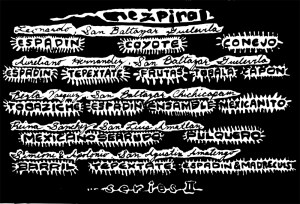 nezpiral
Leonardo San Baltazar Guelavila
ESPADIN COYOTE CONEJO
Aureliano Hernandez San Baltazar Guelavila
ESPADIN TEPEXTATE FRUTAS TOBALA CAPON
San Baltazar Chichicapam
TOBAZICHE ESPADIN ENSAMBLE MEXICANITO
Reina Sanchez San Luis Amatlan
MEXICANO BERARNO PULQUERO
San Agustin Amatengo
BARRIL TEPEXTATE ESPADIN & MADRECUIXE
series II